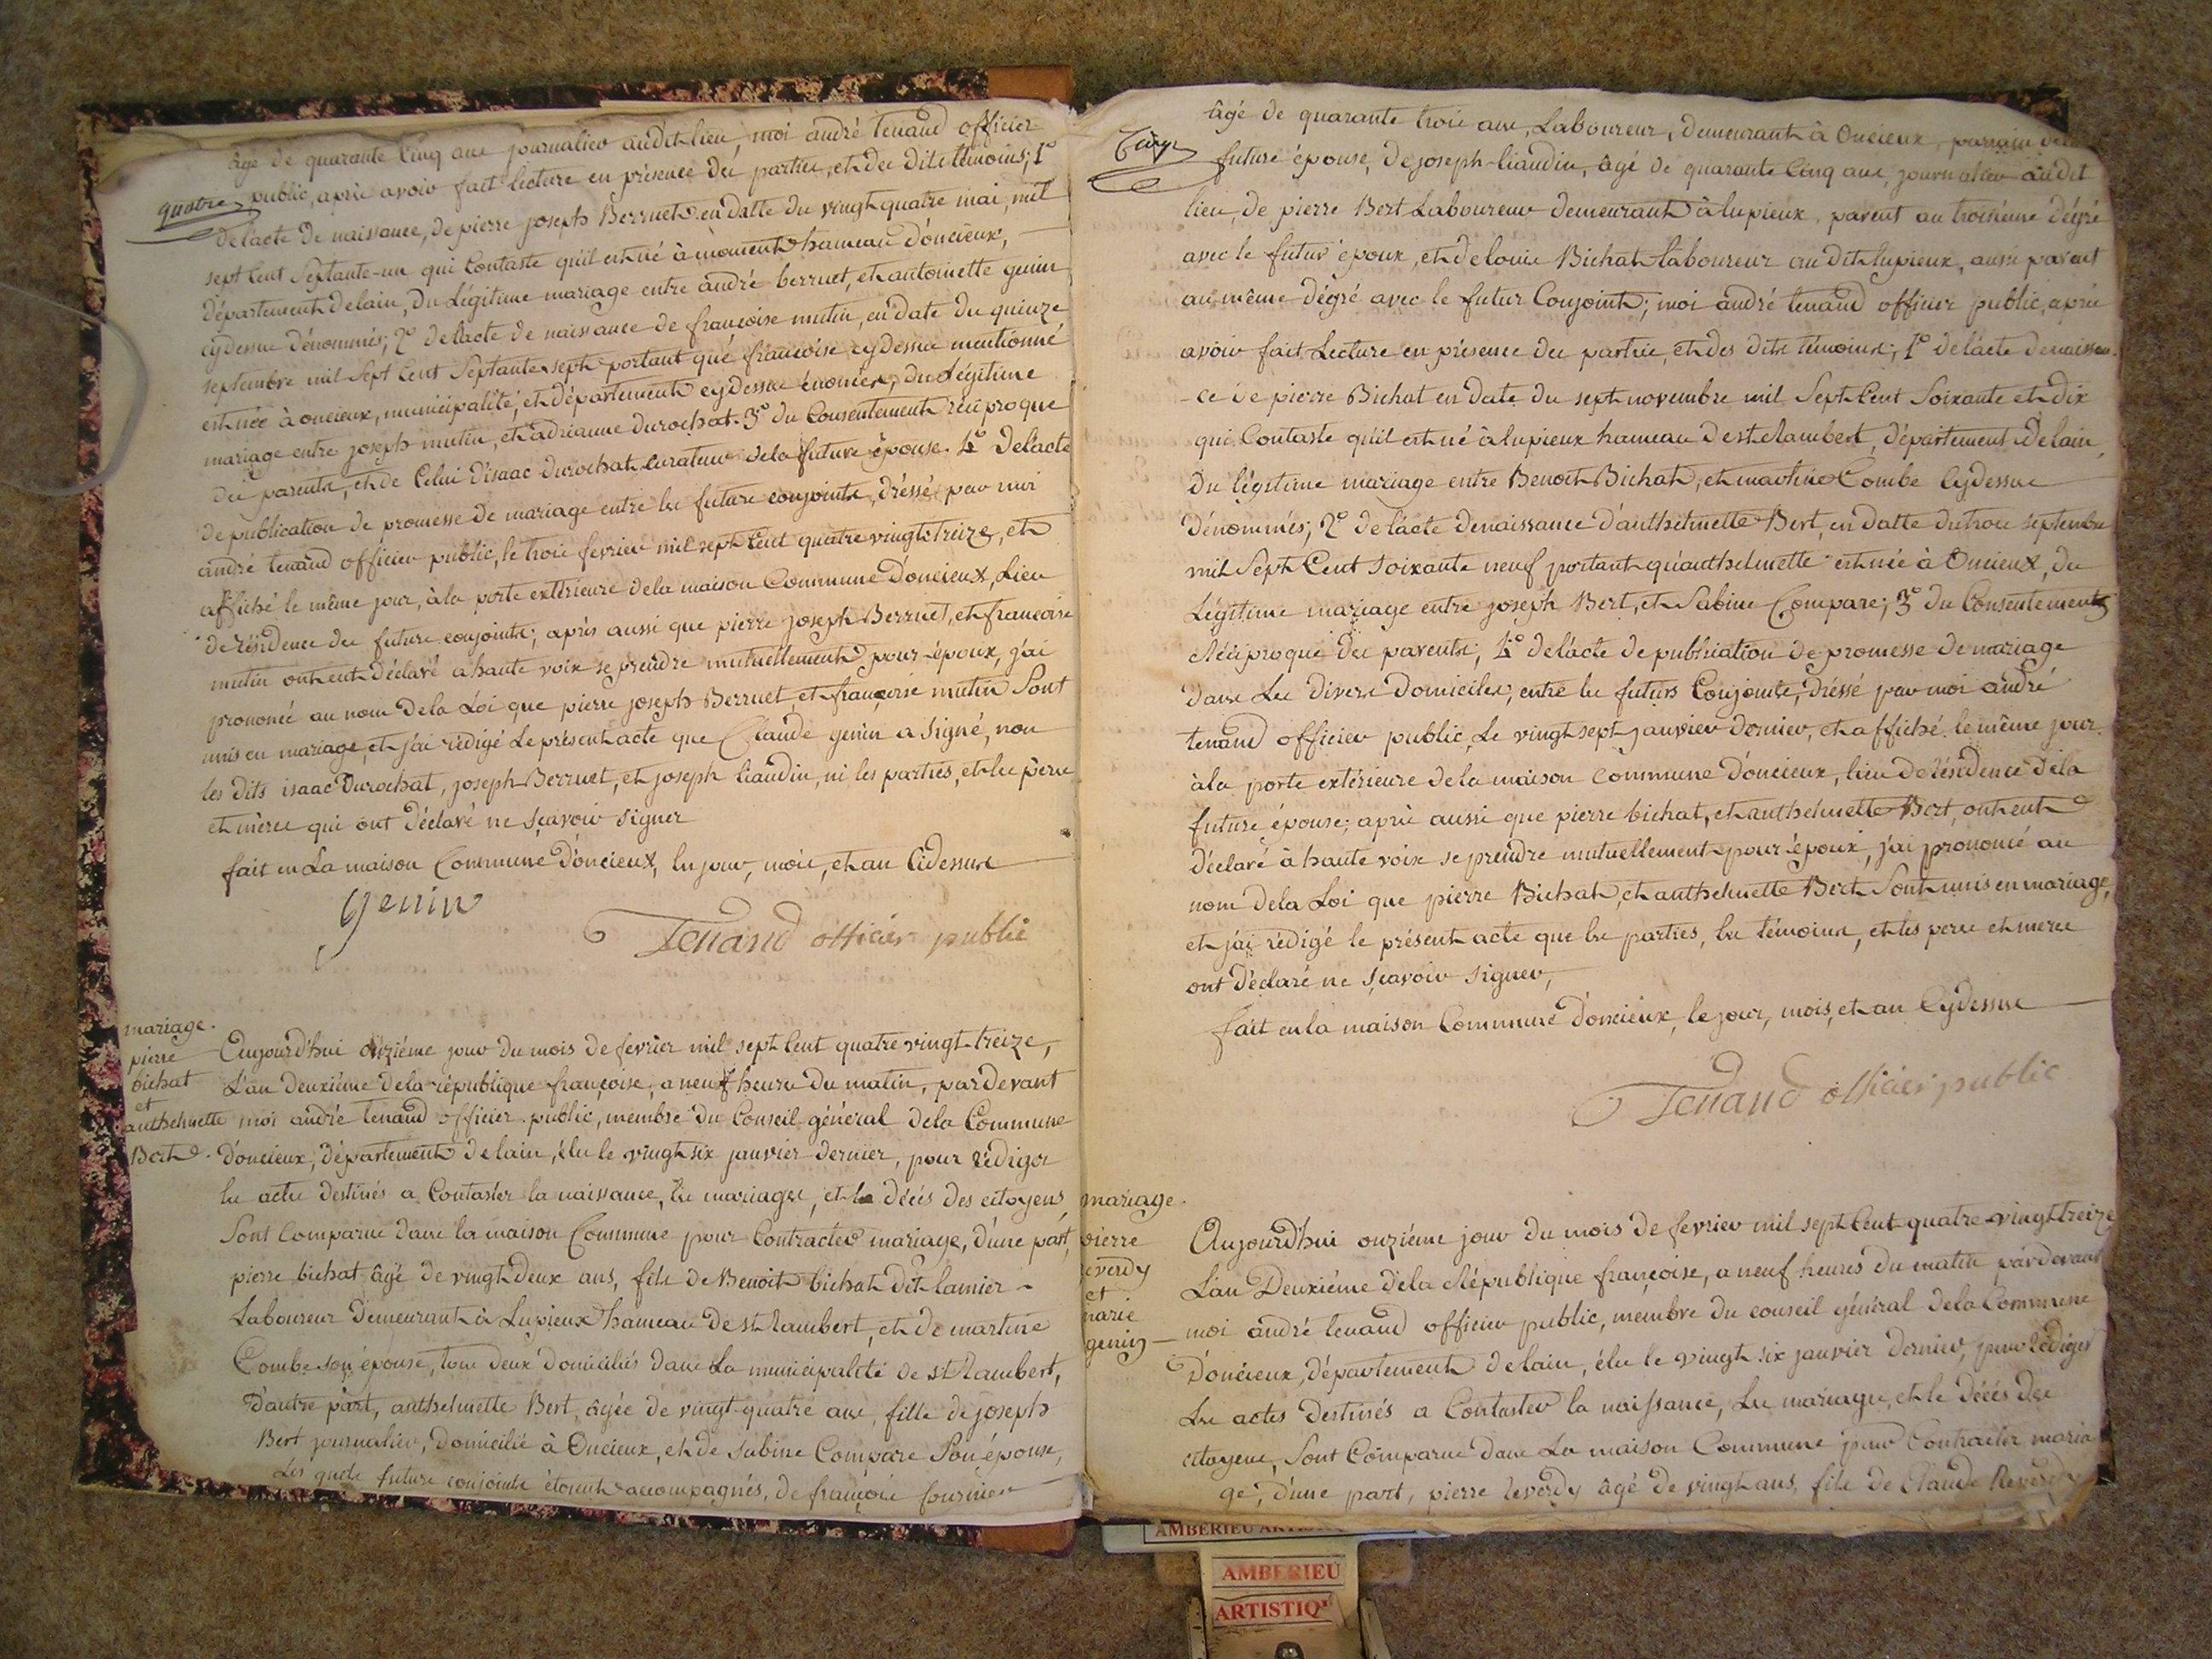 âgé de quarante Cinq ans journalier audit lieu, moi andré tenand officier
quatre
public, aprés avoir fait lecture en présence des parties, et des dits témoins; 1°
de l'acte de naissance, de pierre joseph Berruet en datte du vingt quatre mai, mil
sept Cent Septante-un qui Contaste qu'il est né à moment hameau d'oncieux,
département de lain, du Légitime mariage entre andré berruet, et antoinette genin
cydessus dénommés; 2° de l'acte de naissance de françoise mutin, en date du quinze
septembre mil Sept Cent Septante sept portant que françoise cydessus mentionné
est née à oncieux, municipalité, et département cydessus énoncés, du Légitime
mariage entre joseph mutin, et adrianne durochat. 3° du Consentement réciproque
des parents, et de Celui d'isaac durochat Curateur de la future épouse. 4° De l'acte
de publication de promesse de mariage entre les futurs conjoints, dréssé par moi
andré tenand officier public, le trois fevrier mil sept Cent quatre vingt treize, et
affiché le même jour, à la porte extérieure de la maison Commune d'oncieux, Lieu
de résidence des futurs conjoints; aprés aussi que pierre joseph Berruet, et françoise
mutin ont eut déclaré a haute voix se prendre mutuellement pour époux, j'ai
prononcé au nom de la Loi que pierre joseph Berruet, et françoise mutin Sont
unis en mariage, et j'ai rédigé le présent acte que Claude genin a signé, non
les dits isaac Durochat, joseph Berruet, et joseph liaudin, ni les parties, et les pères
et mères qui ont déclaré ne sçavoir signer
fait en La maison Commune d'oncieux, les jour, mois, et an Cidessus
Genin
Tenand officier public
mariage.
pierre
bichat
et
anthelmette
Bert.
Aujourd'hui onziéme jour du mois de fevrier mil sept Cent quatre vingt treize,
L'an deuxiéme de la république françoise, a neuf heures du matin, pardevant
moi andré tenand officier public, membre du Conseil général de la Commune
d'oncieux, département de lain, élu le vingt six janvier dernier, pour rédiger
les actes destinés a Contaster la naissance, les mariages, et le décés des citoyens,
Sont Comparus dans la maison Commune pour Contracter mariage, d'une part,
pierre bichat âgé de vingt deux ans, fils de Benoit bichat dit lamier
Laboureur Demeurant à Lupieux hameau de st Rambert, et de martine
Combe son épouse, tous deux domiciliés dans La municipalité de st Rambert,
d'autre part, anthelmette Bert, âgée de vingt quatre ans, fille de joseph
Bert journalier, domicilié à Oncieux, et de sabine Compare Son épouse,
Les quels futurs conjoints étoient accompagnés, de françois fournier
âgé de quarante trois ans, Laboureur, demeurant à Oncieux, parrain de la
future épouse, de joseph liaudin, âgé de quarante Cinq ans, journalier audit
lieu, de pierre Bert Laboureur demeurant à lupieux, parent au troisiéme dégré
avec le futur époux, et de louis Bichat laboureur au dit lupieux, aussi parent
au même dégré avec le futur Conjoint; moi andré tenand officier public, aprés
avoir fait Lecture en présence des parties, et des dits témoins; 1° de l'acte de naissan-
-ce de pierre Bichat en date du sept novembre mil Sept Cent Soixante et dix
qui Contaste qu'il est né à lupieux hameau de st Rambert, département de lain,
du légitime mariage entre Benoit Bichat, et martine Combe Cydessus
dénommés; 2° de l'acte de naissance d'anthelmette Bert, en datte du trois septembre
mil Sept Cent soixante neuf portant qu'anthelmette est née à Oncieux, du
Légitime mariage entre joseph Bert, et Sabine Compare; 3° du Consentement
Réciproque des parents; 4° de l'acte de publication de promesse de mariage
dans Les divers domiciles, entre les futurs Conjoints, dréssé par moi andré
tenand officier public, Le vingt sept janvier dernier, et affiché le même jour
à la porte extérieure de la maison commune d'oncieux, lieu de résidence de la
future épouse; aprés aussi que pierre bichat, et anthelmette Bert, ont eut
déclaré à haute voix se prendre mutuellement pour époux, j'ai prononcé au
nom de la Loi que pierre Bichat, et anthelmette Bert Sont unis en mariage,
et j'ai rédigé le présent acte que les parties, les témoins, et les peres et meres
ont déclaré ne sçavoir signer,
fait en la maison Commune d'oncieux, le jour, mois, et an Cydessus
Tenand officier public
mariage.
pierre
reverdy
et
marie
genin
Aujourd'hui onziéme jour du mois de fevrier mil sept Cent quatre-vingt treize
L'an Deuxiéme de la République françoise, a neuf heures du matin pardevant
moi andré tenand officier public, membre du conseil général de la Commune
d'oncieux, département de lain, élu le vingt six janvier dernier, pour rédiger
Les actes destinés a Contaster la naissance, Les mariages, et le décés des
citoyens, Sont Comparus dans La maison Commune pour Contracter maria
ge, d'une part, pierre reverdy âgé de vingt ans, fils de Claude Reverdy
AMBERIEU
AMBERIEU
ARTISTIQ